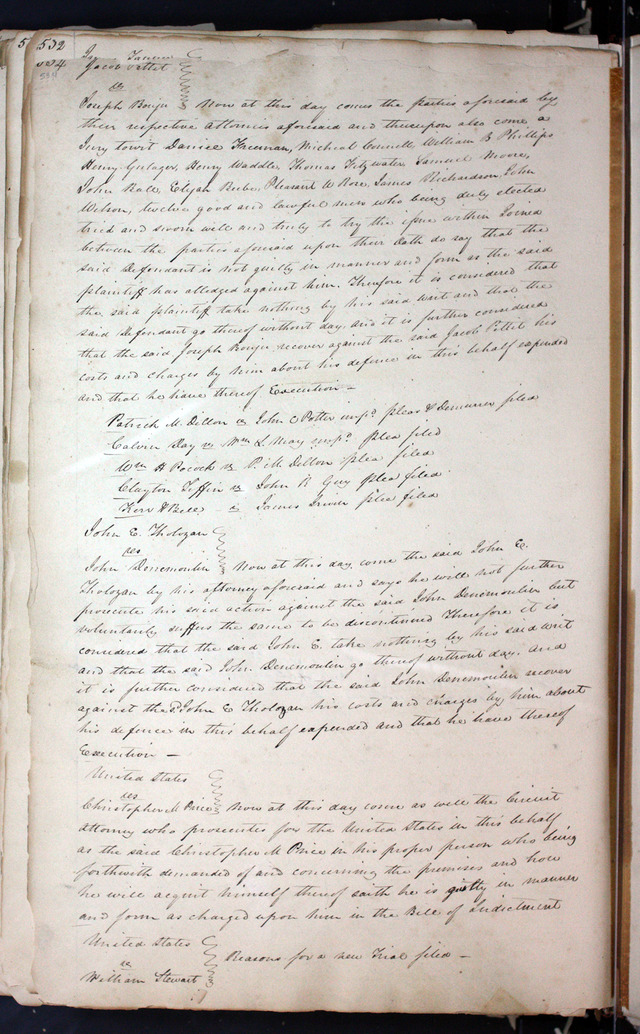 532
534
Jacob Pettit
vs
Joseph Bouju Now at this day comes the parties aforesaid by
their respective Attornies aforesaid and thereupon also come a
Jury towit Daniel Freeman, Micheal Connell, William B Phillips
Henry Gulager, Henry Waddle, Thomas Fitzwater, Samuel Moore,
John Nall, Elijah Beebe, Pleasant W Rose, James Richardson, John
Wilson, twelve good and lawful men who being duly elected
tried and sworn well and truly to try the issue within Joined
between the parties aforesaid upon their Oath do say that the
said Defendant is not guilty in manner and form as the said
plaintiff has alledged against him. Therefore it is considered that
the said plaintiff take nothing by his said writ and that the
said Defendant go thereof without day. And it is further considered
that the said Joseph Bouju recover against the said Jacob Pettit his
costs and charges by him about his defence in this behalf expended
and that he have thereof Execution —
Patrick M. Dillon vs John C Potter pleas & Demurrer filed
Calvin Day vs Wm L May plea filed
Wm H Pocock vs P. M Dillon plea filed
Clayton Tiffin vs John B Guy plea filed
Kerr & Bell vs James Irwin plea filed
John E. Tholozan
vs
John Denemoulin Now at this day come the said John E.
Tholozan by his attorney aforesaid and says he will not further
prosecute his said action against the said John Denemoulin but
voluntarily suffers the same to be discontinued Therefore it is
considered that the said John E. take nothing by his said writ
and that the said John Denemoulin go thereof without day. And
it is further considered that the said John Denemoulin recover
against the sd John E Tholozan his costs and charges by him about
his defence in this behalf expended and that he have thereof
Execution —
United States
vs
Christopher M Price Now at this day come as well the Circuit
attorney who prosecutes for the United States in this behalf
as the said Christopher M Price in his proper person who being
forthwith demanded of and concerning the premises and how
he will acquit himself thereof saith he is guilty in manner
and form as charged upon him in the Bill of Indictment
United States
vs Reasons for a new Trial filed —
William Stewart